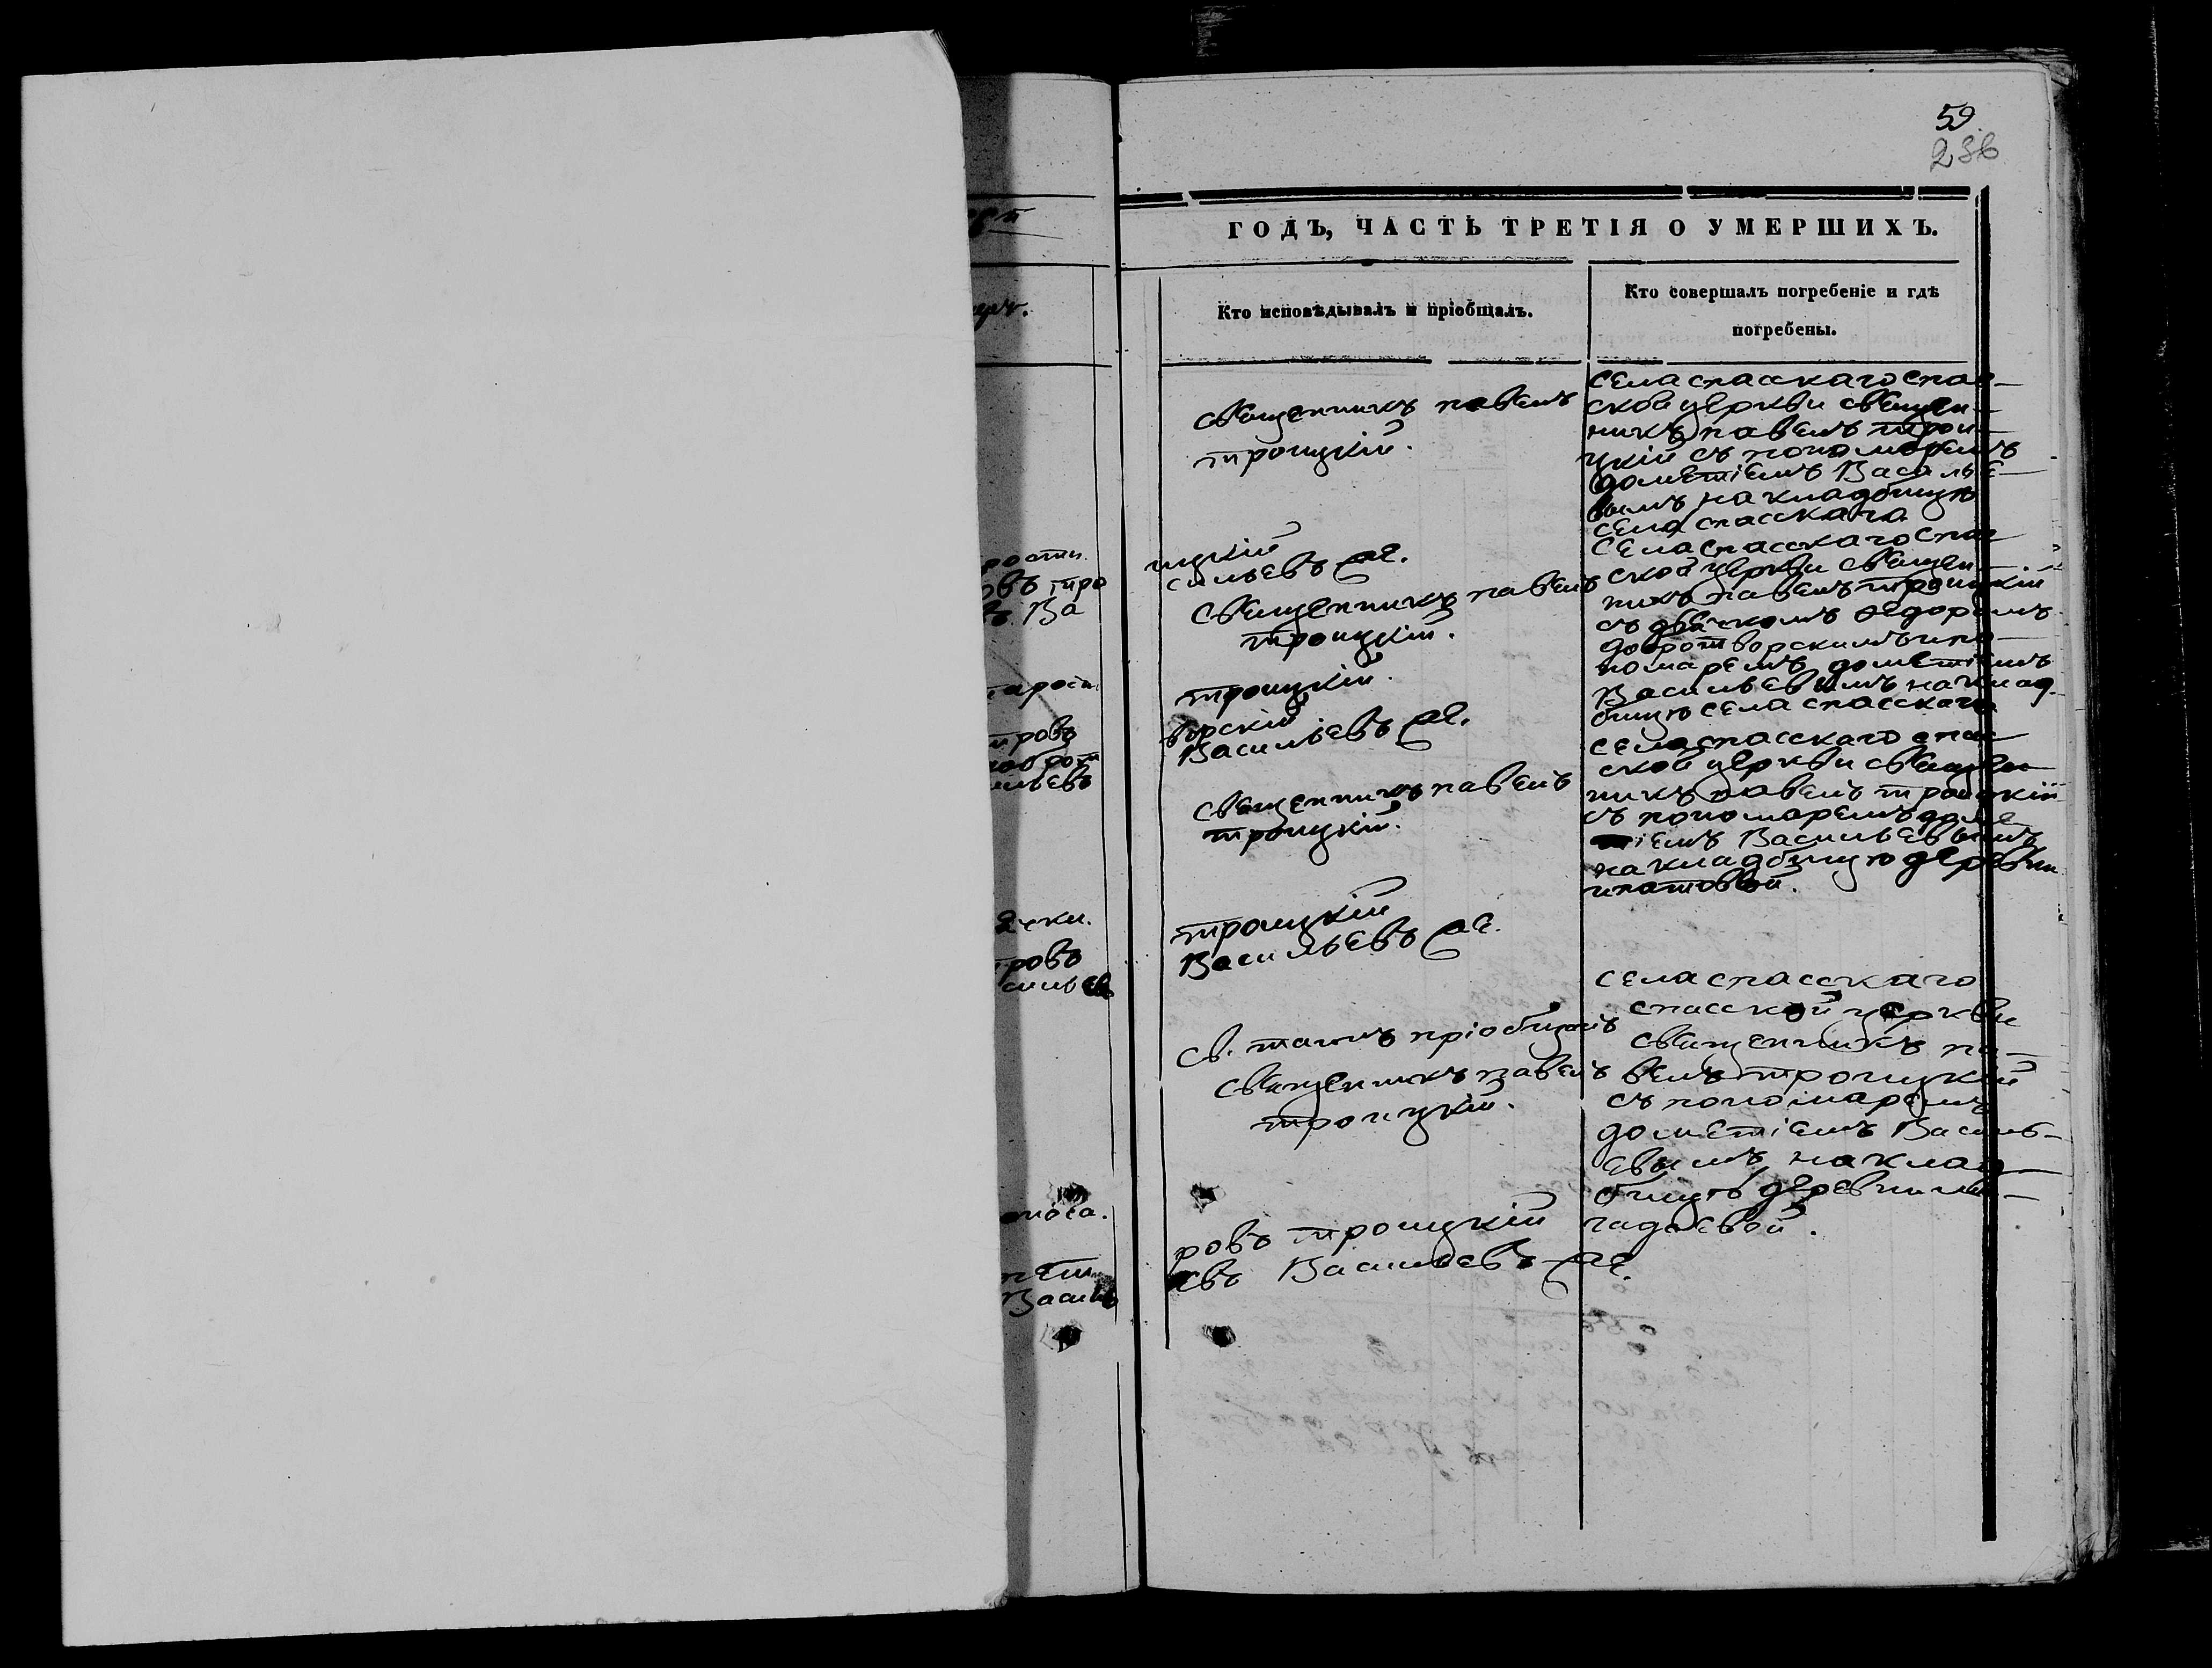 59
236
ГОДЪ, ЧАСТЬ ТРЕТІЯ О УМЕРШИХЪ.
Кто исповѣдывалъ и пріобщалъ.
Кто совершалъ погребеніе и гдѣ
погребены.
священникъ павелъ
троицкій.
села спасскаго спас-
ской церкви священ-
никъ павелъ трои-
цкій съ пономаремъ
дометіемъ Василье-
вымъ на кладбищѣ
села спасскаго
ицкій
сильевъ
священникъ павелъ
троицкій.
троицкій.
ворскій
Васильевъ
села спасскаго спас
ской церкви священ-
никъ павелъ троицкій
съ дьячкомъ ѳедоромъ
добротворскимъ и по-
номаремъ дометіемъ
Васильевымъ на клад-
бищѣ села спасскаго
священникъ павелъ
троицкій.
троицкій
Васильевъ
села спасскаго спас
ской церкви священ
никъ павелъ троицкій
съ пономаремъ доме
тіемъ Васильевымъ
на кладбищѣ деревни
ипатовой.
св. таинъ пріобщалъ
священникъ павелъ
троицкій.
ровъ троицкій
евъ Васильевъ
села спасскаго
спасской церкви
священникъ па-
велъ троицкій
съ пономаремъ
дометіемъ Василь-
евымъ на клад-
бищѣ деревни
гадаевой.
ростри.
овъ тро
Ва
тровъ
доброт
ильевъ
ровъ
сильев
носа.
пет
Василь